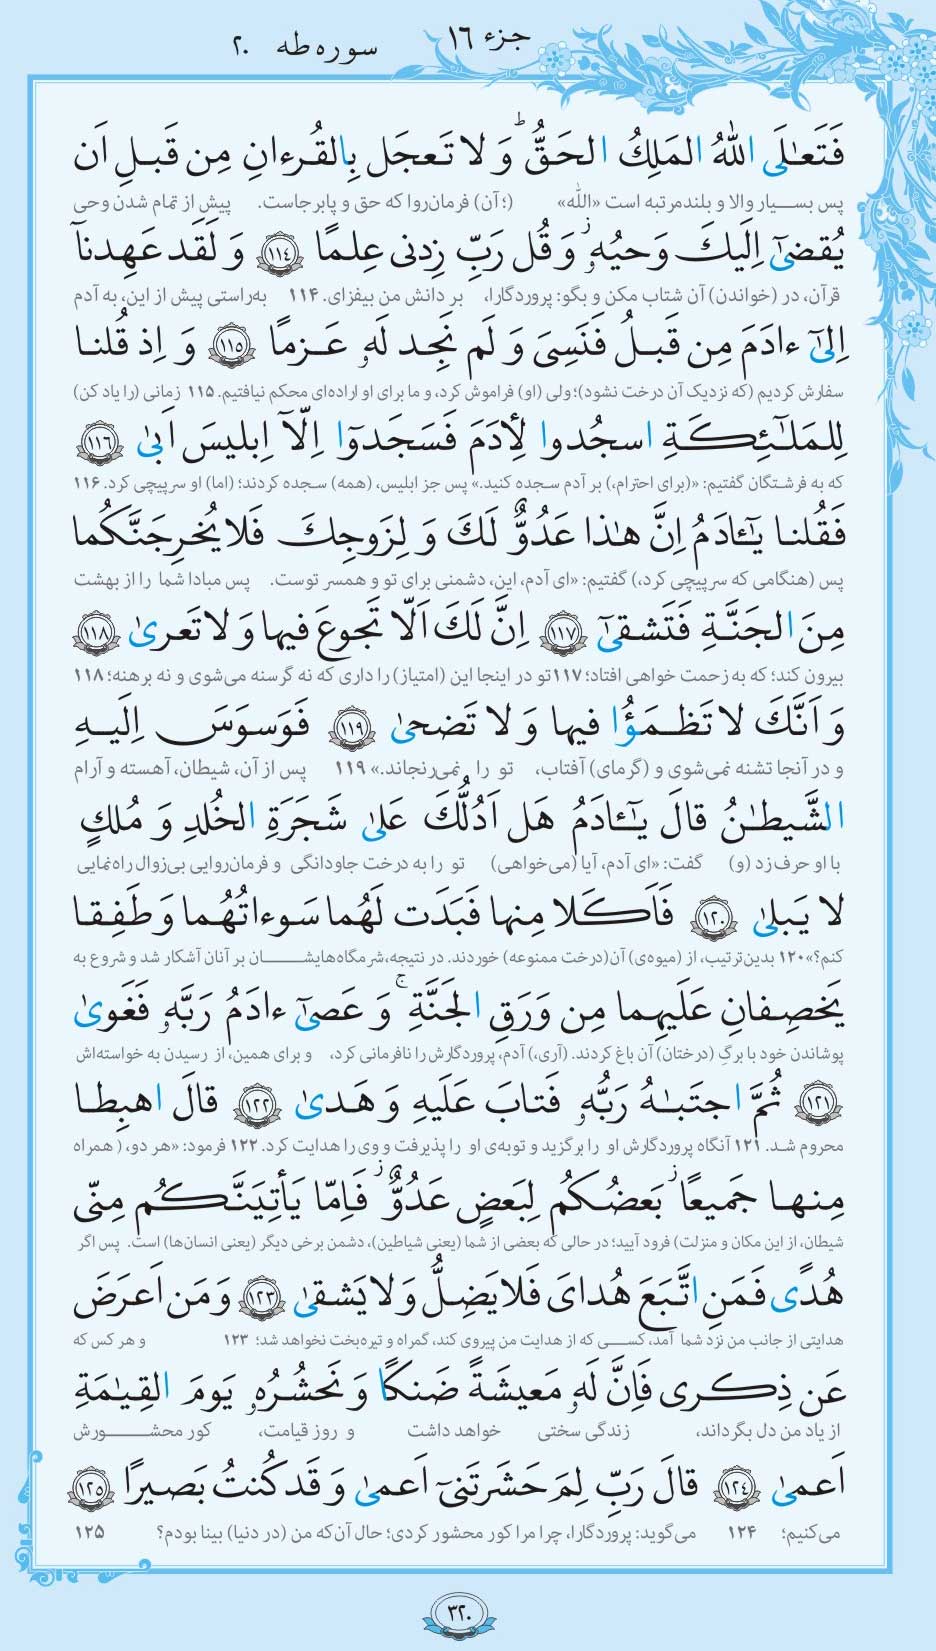 جزء ۱۶
سوره طه ۲۰
فَتَعٰلَى اللّٰهُ المَلِكُ الحَقُّ ۗ وَ لا تَعجَل بِالقُرءانِ مِن قَبلِ اَن
پس بسیار والا و بلندمرتبه است «اللّٰه» (؛ آن) فرمان‌روا که حق و پابرجاست. پیش از تمام شدن وحی
يُقضىٰٓ اِلَيكَ وَحيُهٗ ۖ وَ قُل رَبِّ زِدنى عِلمًا ﴿۱۱۴﴾ وَ لَقَد عَهِدنآ
قرآن، در (خواندن) آن شتاب مکن و بگو: پروردگارا، بر دانش من بیفزای. ۱۱۴ به‌راستی پیش از این، به آدم
اِلىٰٓ ءادَمَ مِن قَبلُ فَنَسِىَ وَ لَم نَجِد لَهٗ عَزمًا ﴿۱۱۵﴾ وَ اِذ قُلنا
سفارش کردیم (که نزدیک آن درخت نشود)؛ ولی (او) فراموش کرد، و ما برای او اراده‌ای محکم نیافتیم. ۱۱۵ زمانی (را یاد کن)
لِلمَلٰٓئِكَةِ اسجُدوا لِأدَمَ فَسَجَدوٓا اِلّآ اِبليسَ اَبىٰ ﴿۱۱۶﴾
که به فرشتگان گفتیم: «(برای احترام،) بر آدم سجده کنید.» پس جز ابلیس، (همه) سجده کردند؛ (اما) او سرپیچی کرد. ۱۱۶
فَقُلنا يٰٓـادَمُ اِنَّ هٰذا عَدُوٌّ لَكَ وَ لِزَوجِكَ فَلا يُخرِجَنَّكُما
پس (هنگامی که سرپیچی کرد،) گفتیم: «ای آدم، این، دشمنی برای تو و همسر توست. پس مبادا شما را از بهشت
مِنَ الجَنَّةِ فَتَشقىٰٓ ﴿۱۱۷﴾ اِنَّ لَكَ اَلّا تَجوعَ فيها وَ لا تَعرىٰ ﴿۱۱۸﴾
بیرون کند؛ که به زحمت خواهی افتاد؛ ۱۱۷ تو در اینجا این (امتیاز) را داری که نه گرسنه می‌شوی و نه برهنه؛ ۱۱۸
وَ اَنَّكَ لا تَظمَؤُا فيها وَ لا تَضحىٰ ﴿۱۱۹﴾ فَوَسوَسَ اِلَيهِ
و در آنجا تشنه نمی‌شوی و (گرمای) آفتاب، تو را نمی‌رنجاند.» ۱۱۹ پس از آن، شیطان، آهسته و آرام
الشَّيطٰنُ قالَ يٰٓـادَمُ هَل اَدُلُّكَ عَلىٰ شَجَرَةِ الخُلدِ وَ مُلكٍ
با او حرف زد (و) گفت: «ای آدم، آیا (می‌خواهی) تو را به درخت جاودانگی و فرمان‌روایی بی‌زوال راه‌نمایی
لا يَبلىٰ ﴿۱۲۰﴾ فَاَكَلا مِنها فَبَدَت لَهُما سَوءاتُهُما وَ طَفِقا
کنم؟» ۱۲۰ بدین‌ترتیب، از (میوه‌ی) آن(درخت ممنوعه) خوردند. در نتیجه، شرمگاه‌هایشان بر آنان آشکار شد و شروع به
يَخصِفانِ عَلَيهِما مِن وَرَقِ الجَنَّةِ ۚ وَ عَصىٰٓ ءادَمُ رَبَّهٗ فَغَوىٰ
پوشاندن خود با برگِ (درختان) آن باغ کردند. (آری،) آدم، پروردگارش را نافرمانی کرد، و برای همین، از رسیدن به خواسته‌اش
﴿۱۲۱﴾ ثُمَّ اجتَبٰهُ رَبُّهٗ فَتابَ عَلَيهِ وَ هَدىٰ ﴿۱۲۲﴾ قالَ اهبِطا
محروم شد. ۱۲۱ آنگاه پروردگارش او را برگزید و توبه‌ی او را پذیرفت و وی را هدایت کرد. ۱۲۲ فرمود: «هر دو، ( همراه
مِنها جَميعًا ۖ بَعضُكُم لِبَعضٍ عَدُوٌّ ۖ فَاِمّا يَأتِيَنَّكُم مِنّى
شیطان، از این مکان و منزلت) فرود آیید؛ در حالی که بعضی از شما (یعنی شیاطین)، دشمن برخی دیگر (یعنی انسان‌ها) است. پس اگر
هُدًى فَمَنِ اتَّبَعَ هُداىَ فَلا يَضِلُّ وَ لا يَشقىٰ ﴿۱۲۳﴾ وَ مَن اَعرَضَ
هدایتی از جانب من نزد شما آمد، کسی که از هدایت من پیروی کند، گمراه و تیره‌بخت نخواهد شد؛ ۱۲۳ و هر کس که
عَن ذِكرى فَاِنَّ لَهٗ مَعيشَةً ضَنكًا وَ نَحشُرُهٗ يَومَ القِيٰمَةِ
از یاد من دل بگرداند، زندگی سختی خواهد داشت و روز قیامت، کور محشورش
اَعمىٰ ﴿۱۲۴﴾ قالَ رَبِّ لِمَ حَشَرتَنىٓ اَعمىٰ وَ قَد كُنتُ بَصيرًا ﴿۱۲۵﴾
می‌کنیم؛ ۱۲۴ می‌گوید: پروردگارا، چرا مرا کور محشور کردی؛ حال آن‌که من (در دنیا) بینا بودم؟ ۱۲۵
۳۲۰